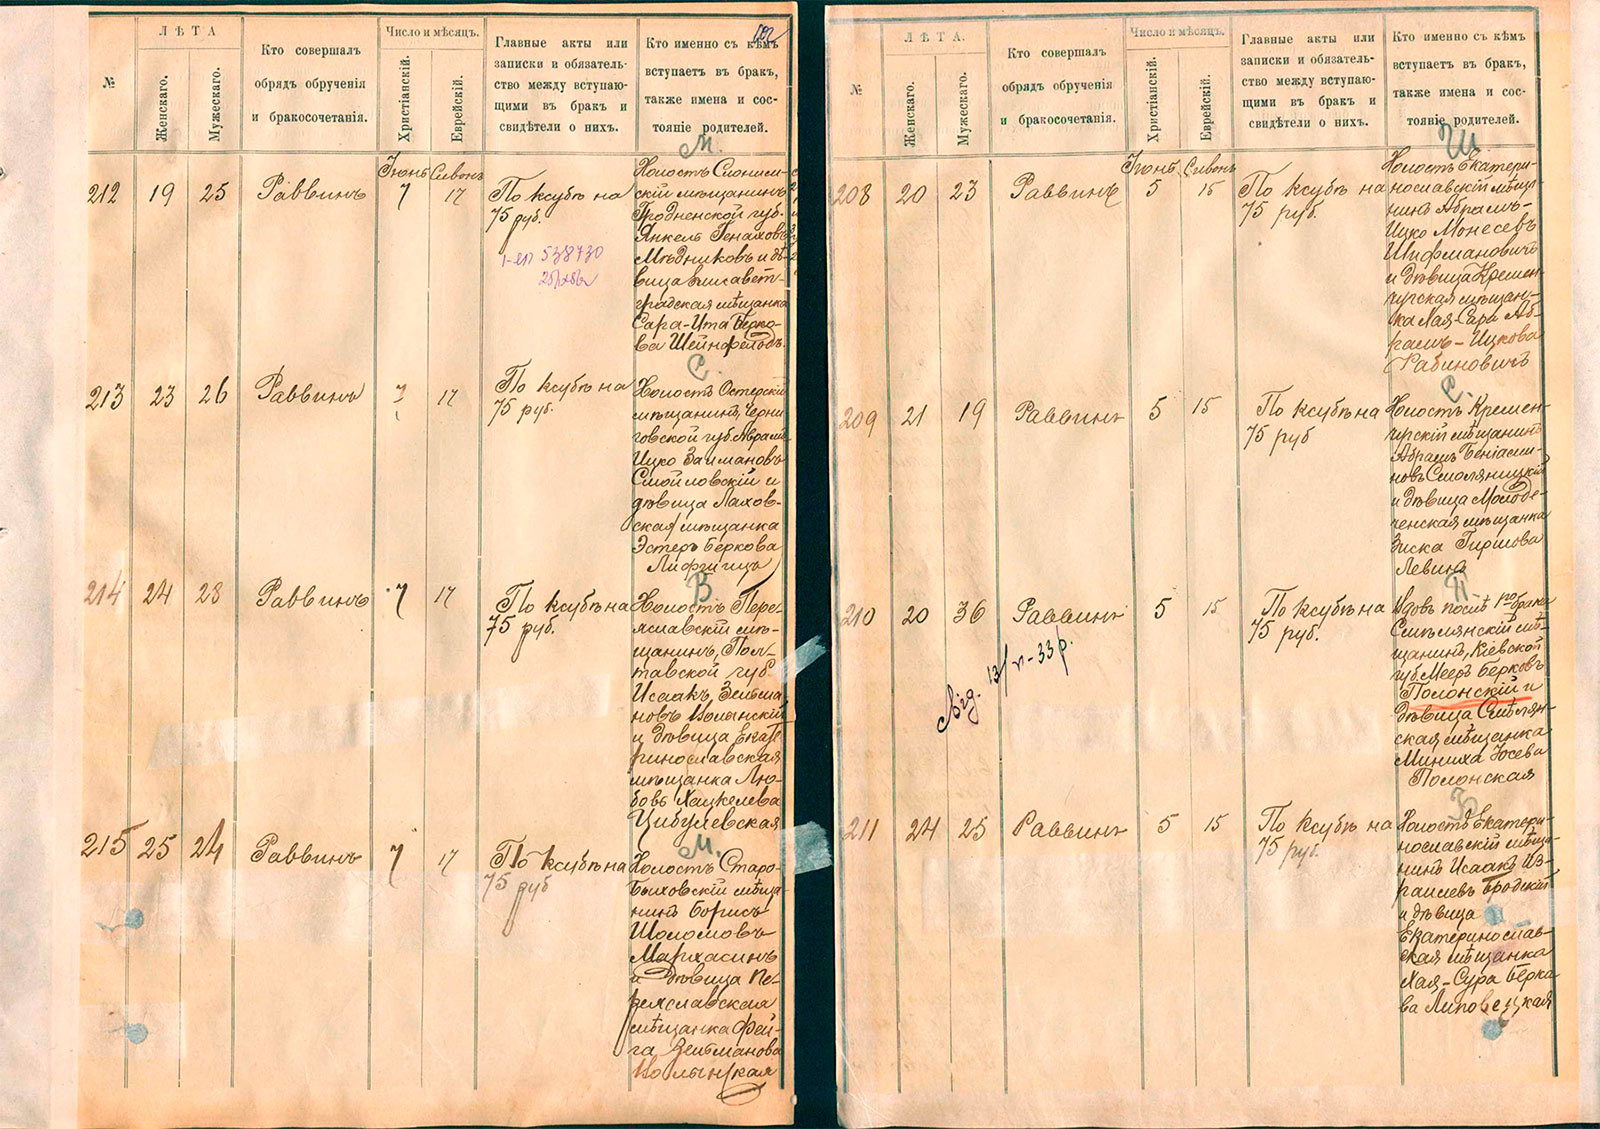 402
№
ЛѢТА
Женскаго.
Мужескаго.
Кто совершалъ
обрядъ обрученія
и бракосочетанія.
Число и мѣсяцъ.
Христіанскій.
Еврейскій.
Главные акты или
записки и обязатель-
ство между вступаю-
щими въ бракъ и
свидѣтели о нихъ.
Кто именно съ кѣмъ
вступаетъ въ бракъ,
также имена и сос-
тояніе родителей.
М.
Іюнь Сивонъ
212 19 25 Раввинъ 7 17
По ксубѣ на
75 руб.
538730
Холостъ Слоним-
скій мѣщанинъ
Гродненской губ.
Янкель Генаховъ
Мѣдниковъ и дѣ-
вица Елисавет-
градская мѣщанка
Сара-Ита Берко-
ва Шейнфельдъ.
С.
213 23 26 Раввинъ 7 17
По ксубѣ на
75 руб.
Холостъ Остерскій
мѣщанинъ, Черни-
говской губ. Аврамъ
Ицко Залмановъ
Смойловскій и
дѣвица Лахов-
ская мѣщанка
Эстеръ Беркова
Лифшицъ
В.
214 24 28 Раввинъ 7 17
По ксубѣ на
75 руб.
Холостъ Пере-
яславскій мѣ-
щанинъ, Пол-
тавской губ.
Исаакъ Зельма-
новъ Волынскій
и дѣвица Екате-
ринославская
мѣщанка Лю-
бовь Хацкелева
Цибулевская
М.
215 25 24 Раввинъ 7 17
По ксубѣ на
75 руб
Холостъ Старо-
Быховскій мѣща-
нинъ Борисъ
Шоломовъ
Мархасинъ
и дѣвица Пе-
реяславская
мѣщанка Фей-
га Зельманова
Волынская
№
ЛѢТА.
Женскаго.
Мужескаго.
Кто совершалъ
обрядъ обрученія
и бракосочетанія.
Число и мѣсяцъ.
Христіанскій.
Еврейскій.
Главные акты или
записки и обязатель-
ство между вступаю-
щими въ бракъ и
свидѣтели о нихъ.
Кто именно съ кѣмъ
вступаетъ въ бракъ,
также имена и сос-
тояніе родителей.
Ш
Іюнь Сивонъ
208 20 23 Раввинъ 5 15
По ксубѣ на
75 руб.
Холостъ Екатери-
нославскій мѣща-
нинъ Абрамъ-
Ицко Монесевъ
Шифмановичъ
и дѣвица Кремен-
чугская мѣщан-
ка Хая-Сара Аб-
рамъ-Ицкова
Рабиновичъ
С.
209 21 19 Раввинъ 5 15
По ксубѣ на
75 руб
Холостъ Кремен-
чугскій мѣщанинъ
Абрамъ Беніами-
новъ Смоляницкій
и дѣвица Молоде-
ченская мѣщанка
Зиска Гиршова
Левина
П.
210 20 36 Раввинъ 5 15
По ксубѣ на
75 руб.
Вдовъ послѣ 1го брака
Смѣлянскій мѣ-
щанинъ, Кіевской
губ. Мееръ Берковъ
Полонскій и
дѣвица Смѣлян-
ская мѣщанка
Миниха Іосева
Полонская
Від. 13/VI-33р.
Б
211 24 25 Раввинъ 5 15
По ксубѣ на
75 руб.
Холостъ Екатери-
нославскій мѣща-
нинъ Исаакъ Из-
раилевъ Бродскій
и дѣвица
Екатеринослав-
ская мѣщанка
Хая-Сура Берко-
ва Липовецкая